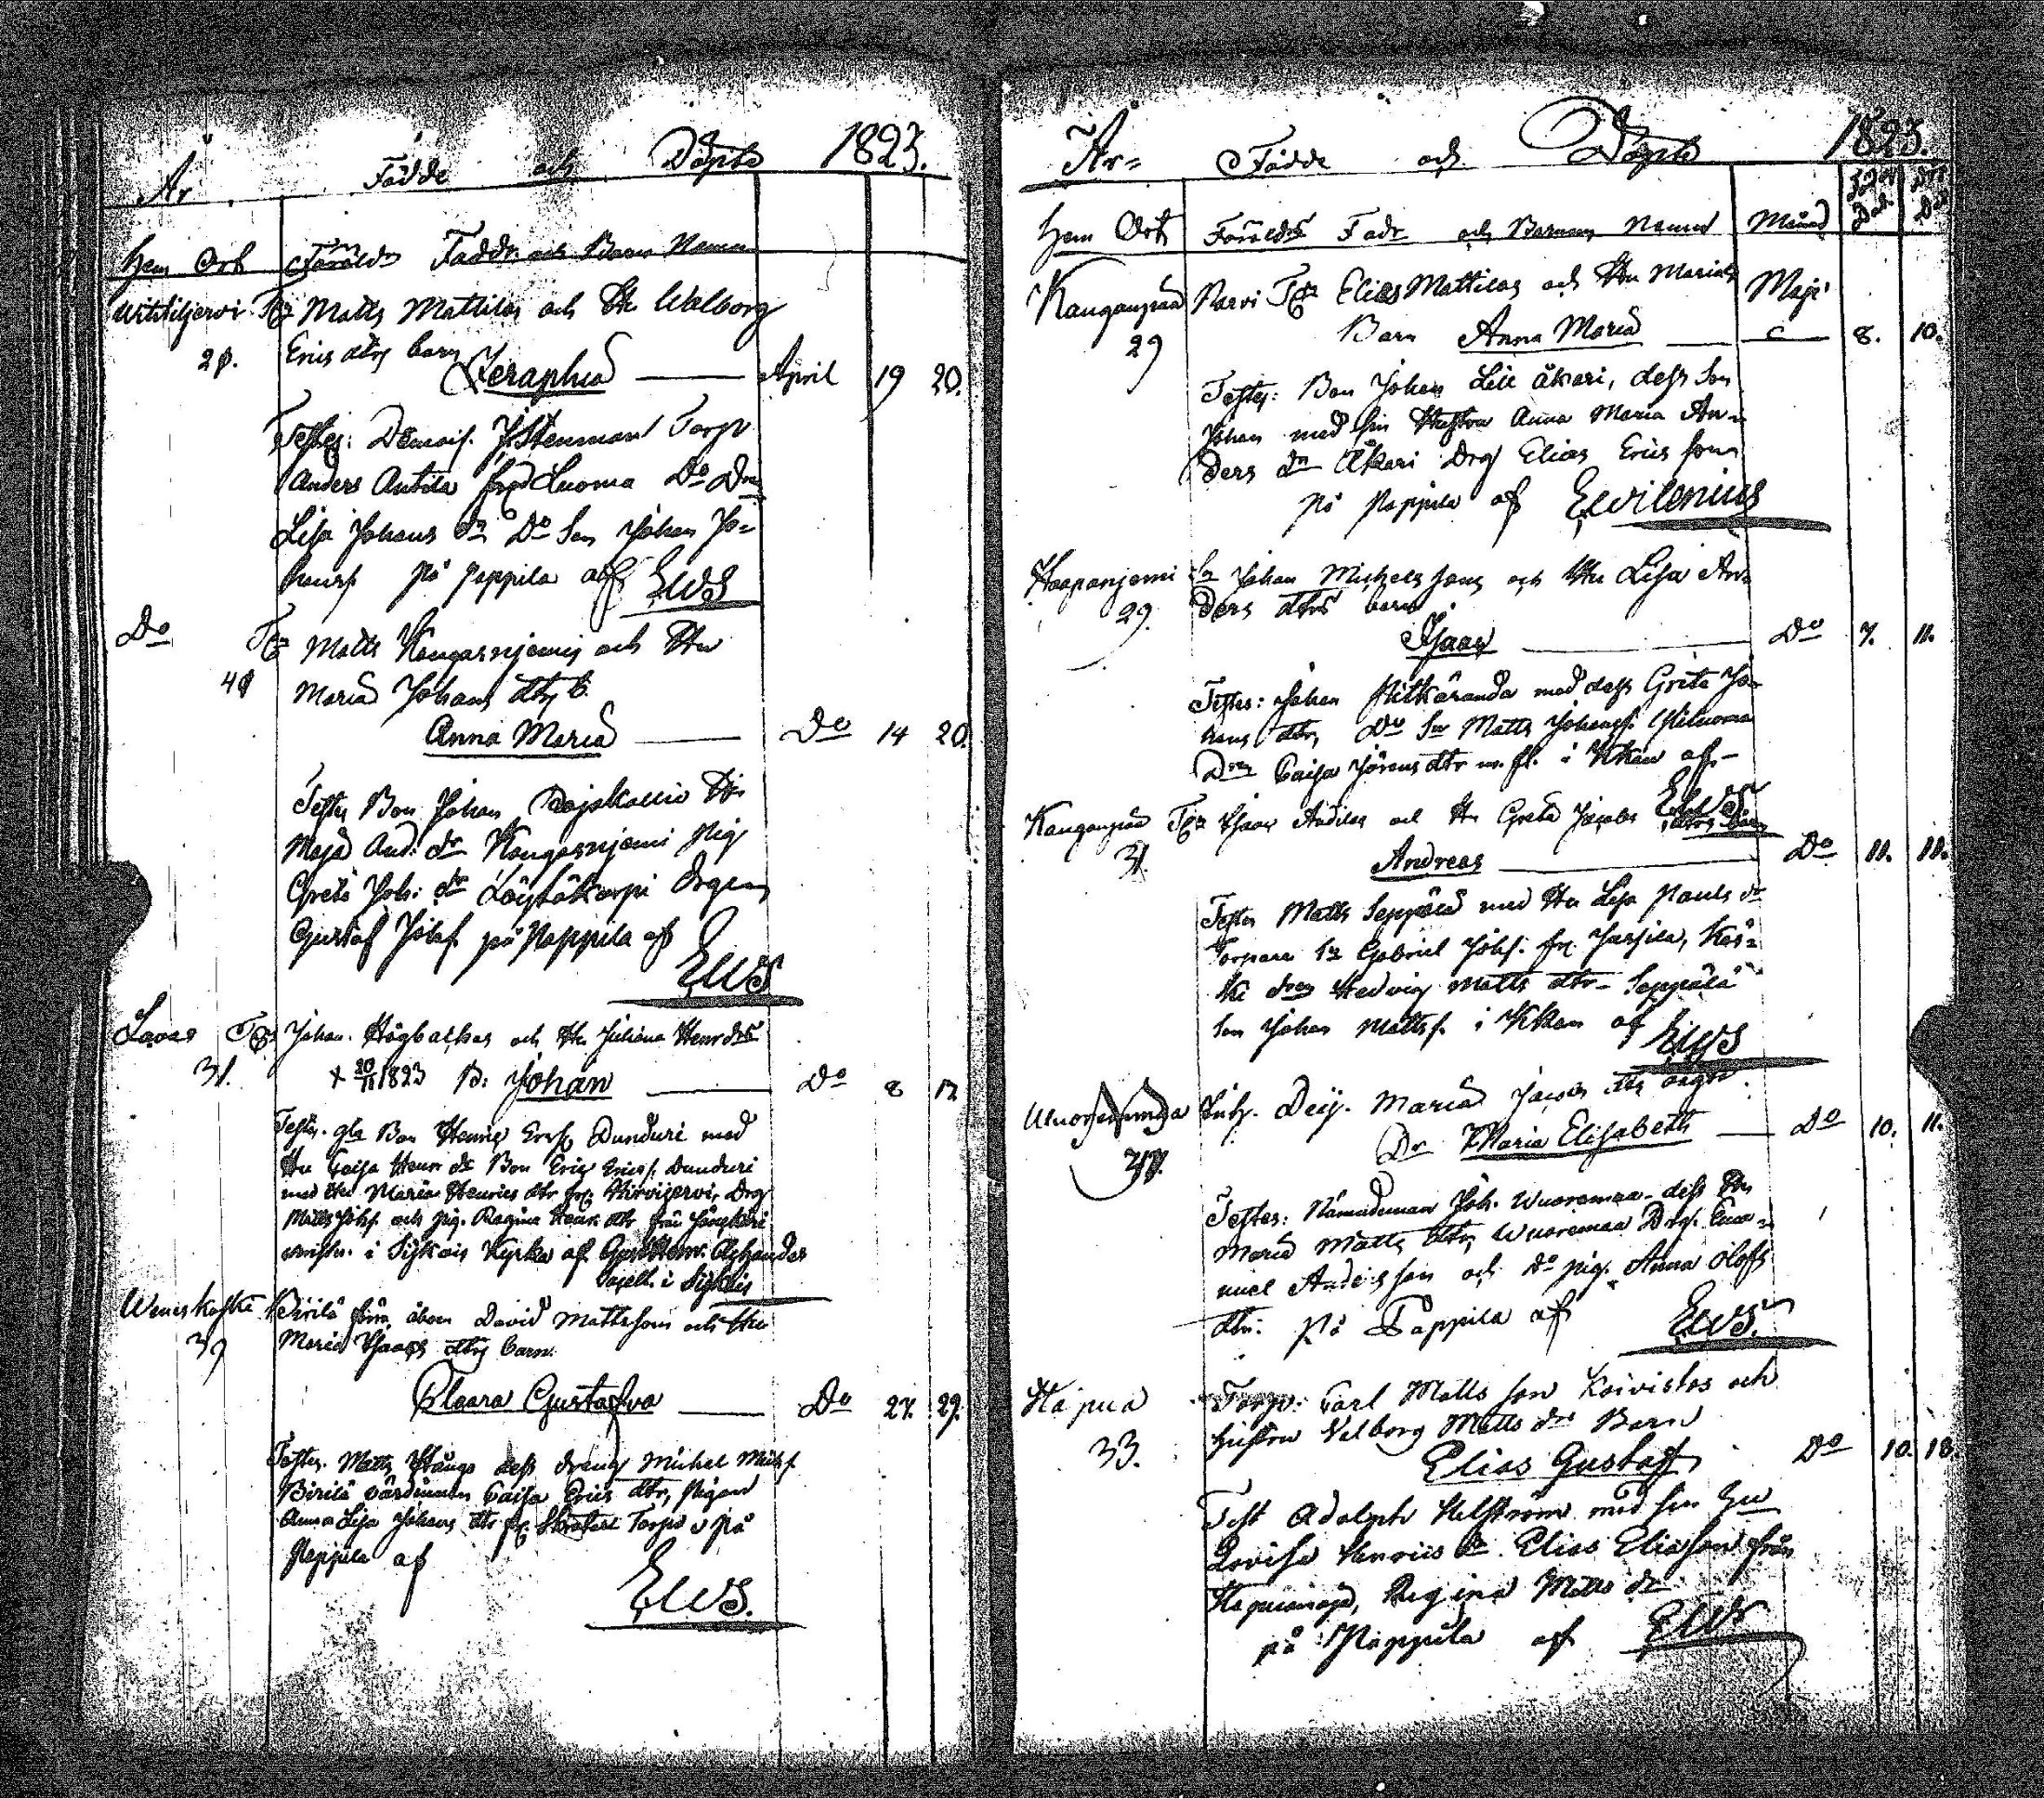 År Födde och Döpte 1823.
Hem Ort Föräldr Faddr och Barns Namn
Tor Matts Mattilas och Hu Walborg
28. Erics dtrs barn
Seraphia April 19 20.
Testes: Demois. J. Stenman Torp
Anders Antila från Luoma Do Drg
Lisa Johans dr Do Son Johan Jo=
hanss. på Pappila af EWS
Do Tor Matts Kangasnjemis och Hu
40 Maria Johans dtrs b.
Anna Maria Do 14 20.
Testes Bon Johan
Maja And. dr Kangasnjemi Pig
Greta Joh: dr Löytökorpi Drgen
Gustaf Johss. på Pappila af
EWS
Lavas Tor Johan Högbackas och Hu Juliana Henr drs
31. + 20/11 1823 B: Johan Do 8 12
Testes. gla Bon Henric Ericss. Dunduri med
Hu Caisa Henr dr Bon Eric Ericss. Dunduri
med Hu Maria Henrics dtr fr. Hirvijervi, Drg
Matts Johss. och pig. Regina Henr. dtr från
christn. i Sijkais Kyrka af Gust. Henr. Achander
Capell. i Sijkais
Weneskoski Pirilä åbon David Mattssons och Hu
39 Maria Isaacs dtrs barn.
Claara Gustafva Do 27. 29.
Testes. Matts Stånga dess dräng Michel Michss.
Pirilä värdinnan Caisa Erics dtr, Pigan
Anna Lisa Johans dtr fr. Torp på
Pappila af
EWS.
År= Födde och Döpte 1823.
Hem Ort Föräldrs Fadr och Barnens Namn Månad Föd. Dat. Döp. Dat
Kanganpää Narvi Tor Elias Mattilas och Hu Marias Maji
29 Barn Anna Maria 8. 10.
Testes: Bon Johan Lill Åkari, dess Son
Johan med sin Hustru Anna Maria An=
ders dr Åkari Drg Elias Erics son
på Pappila af EWilenius
Haapanjemi Sn Johan Michelssons och Hu Lisa An=
29. ders dtrs barn
Isaac Do 7. 11.
Testes: Johan Pitkäranda med dess Greta Jo=
hans dtr, Do Sn Matts Johanss. Yliluoma
Drn Caisa Jörans dtr m. fl. i Kkan af
EWS
Kanganpää Tor Isaac Andilas och Hu Greta Jacobs dtrs Barn
31. Andreas Do 11. 11.
Testes Matts Seppälä med Hu Lisa Pauls dr
Torpare Sn Gabriel Johss. fr. Jussila, Kos=
ki drng Hedvig Matts dtr Seppälä
Son Johan Mattss. i Kkan af EWS
Inh. Deij. Maria Jacobs dtrs oägta
Dr Maria Elisabeth Do 10. 11.
Testes: Nämndeman Joh. Wuorenmaa dess Hu
Maria Matts dtr, Wuorenmaa Drg. Ema=
nuel Andersson och Do pig. Anna Olofs
dtr. på Pappila af EWS.
Hapua Torp. Carl Mattsson Koivistos och
33. hustru Valborg Matts drs Barn
Elias Gustaf Do 10. 18.
Test Adolph Helström med sin Hu
Lovisa Henrics dr. Elias Eliasson från
Hapuanoja, Regina Matts dr
på Pappila af EWS